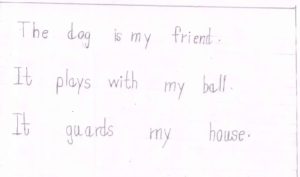 The dog is my friend.
It plays with my ball.
It guards my house.